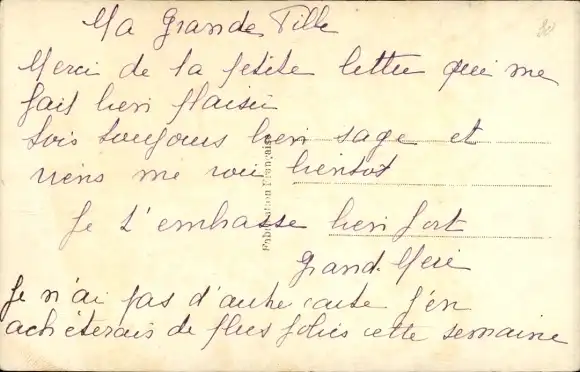 Ma Grande Fille
Merci de ta petite lettre qui me
fait bien plaisir
sois toujours bien sage et
viens me voir bientot
Je t'embrasse bien fort
Grand-Mère
Je n'ai pas d'autre carte j'en
achèterais de plus jolies cette semaine
Fabrication Française